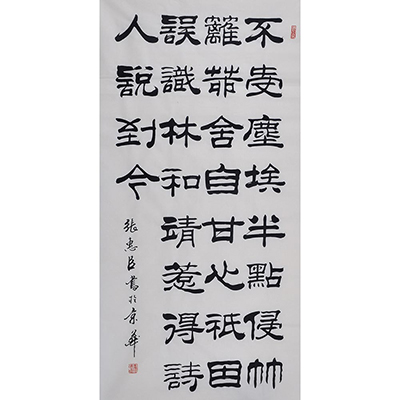 不受塵埃半點侵竹
籬茅舍自甘心祇因
誤識林和靖惹得詩
人說到今
張惠臣書於京華